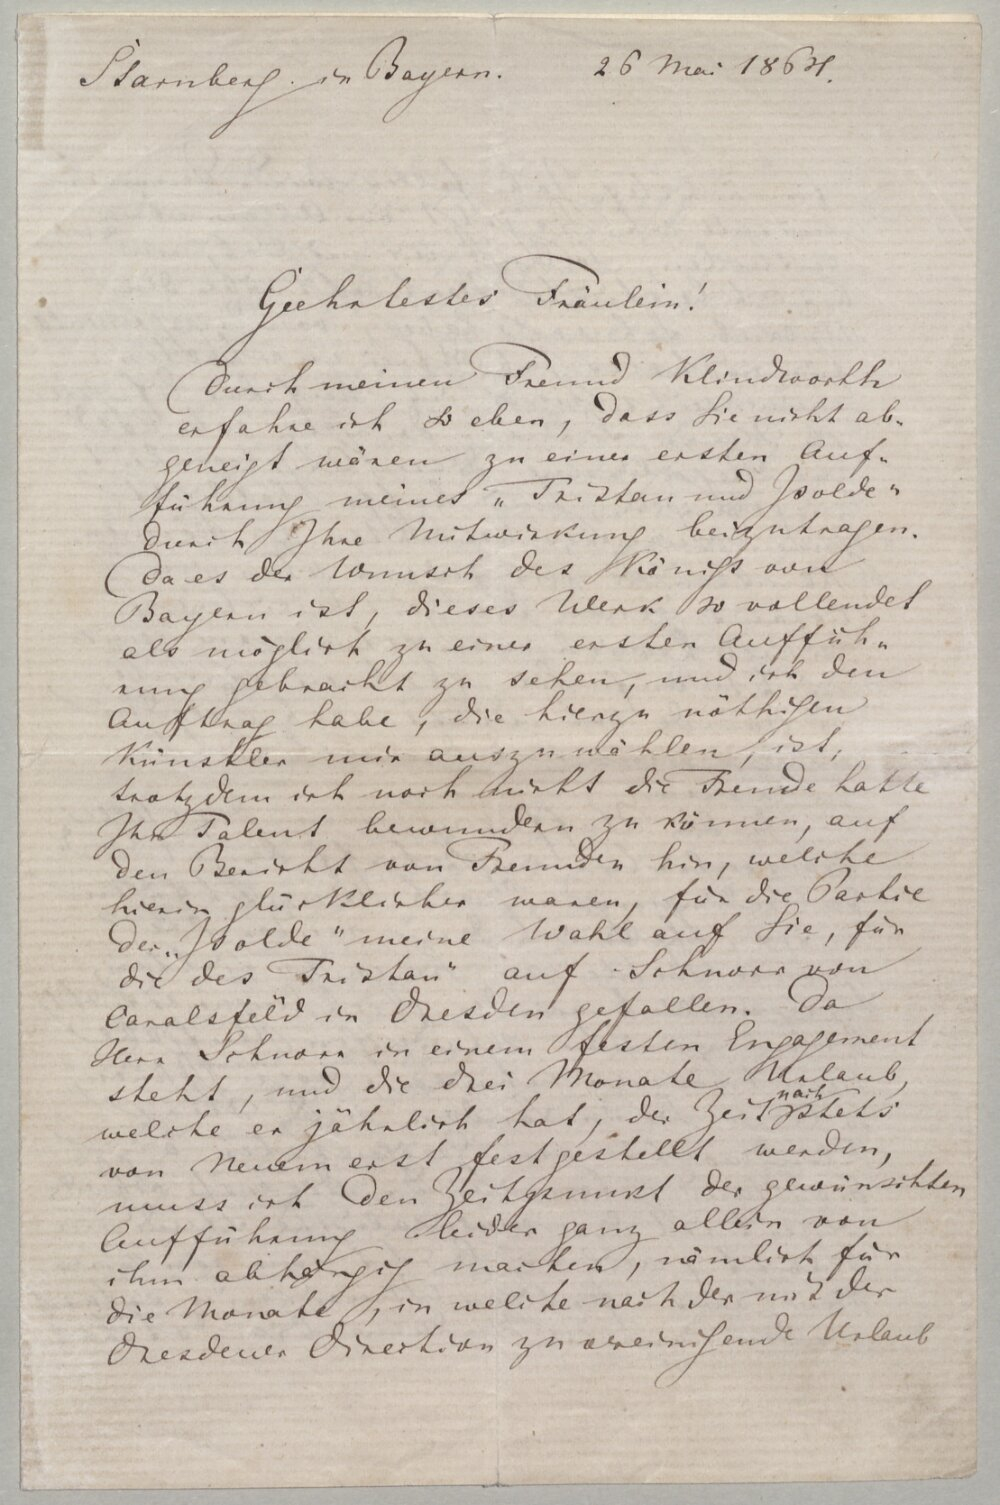 Starnberg in Bayern. 26 Mai 1864.
Geehrtestes Fräulein!
Durch meinen Freund Klindworth
erfahre ich so eben, dass Sie nicht ab-
geneigt wären zu einer ersten Auf-
führung meines „Tristan und Isolde"
durch Ihre Mitwirkung beizutragen.
Da es der Wunsch des Königs von
Bayern ist, dieses Werk so vollendet
als möglich zu einer ersten Auffüh-
rung gebracht zu sehen, und ich den
Auftrag habe, die hierzu nöthigen
Künstler mir auszuwählen, ist,
trotzdem ich noch nicht die Freude hatte
Ihr Talent bewundern zu können, auf
den Bericht von Freunden hin, welche
hierin glücklicher waren, für die Partie
der „Isolde" meine Wahl auf Sie, für
die des Tristan" auf Schnorr von
Carolsfeld in Dresden gefallen. Da
Herr Schnorr in einem festen Engagement
steht, und die drei Monate Urlaub,
welche er jährlich hat, der Zeit nach stets
von Neuem erst festgestellt werden,
muss ich den Zeitpunkt der gewünschten
Aufführung leider ganz allein von
ihm abhängig machen, nämlich für
die Monate, in welche nach der mit der
Dresdener Direction zu vereinigende Urlaub